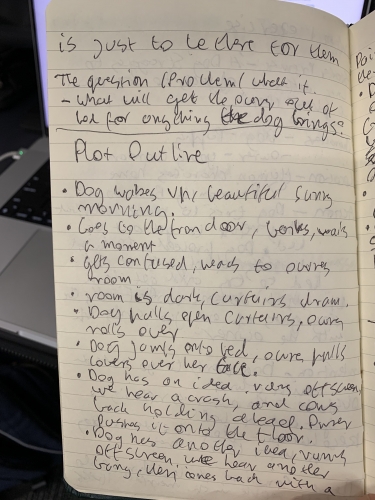 is just to be there for them
The question / Problem / what if.
- What will get the owner out of
bed for anything the dog brings?
Plot Outline
• Dog wakes up, beautiful sunny
morning.
• Goes to the front door, barks, waits
a moment
• gets confused, heads to owners
room
• room is dark, curtains drawn.
• Dog pulls open curtains, owner
rolls over
• Dog jumps onto bed, owner pulls
covers over her face.
• Dog has an idea, runs offscreen,
we hear a crash, and comes
back holding a lead. Owner
pushes it onto the floor.
• Dog has another idea, runs
offscreen, we hear another
bang, then comes back with a